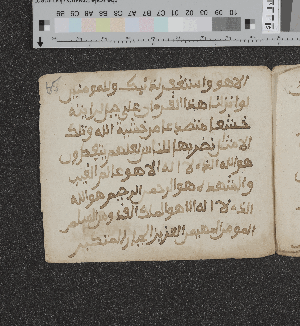 الا هو واستغفر لذنبك وللمومنين
لو انزلنا هذا القرءان على جبل لرايته
خشعا متصدعا من خشية الله وتلك
الامثل نضربها للناس لعلهم يتفكرون
هو الله الذي لا اله الا هو علم الغيب
والشهدة هو الرحمن الرحيم هو الله
الذي لا اله الا هو الملك القدوس السلم
المومن المهيمن العزيز الجبار المتكبر